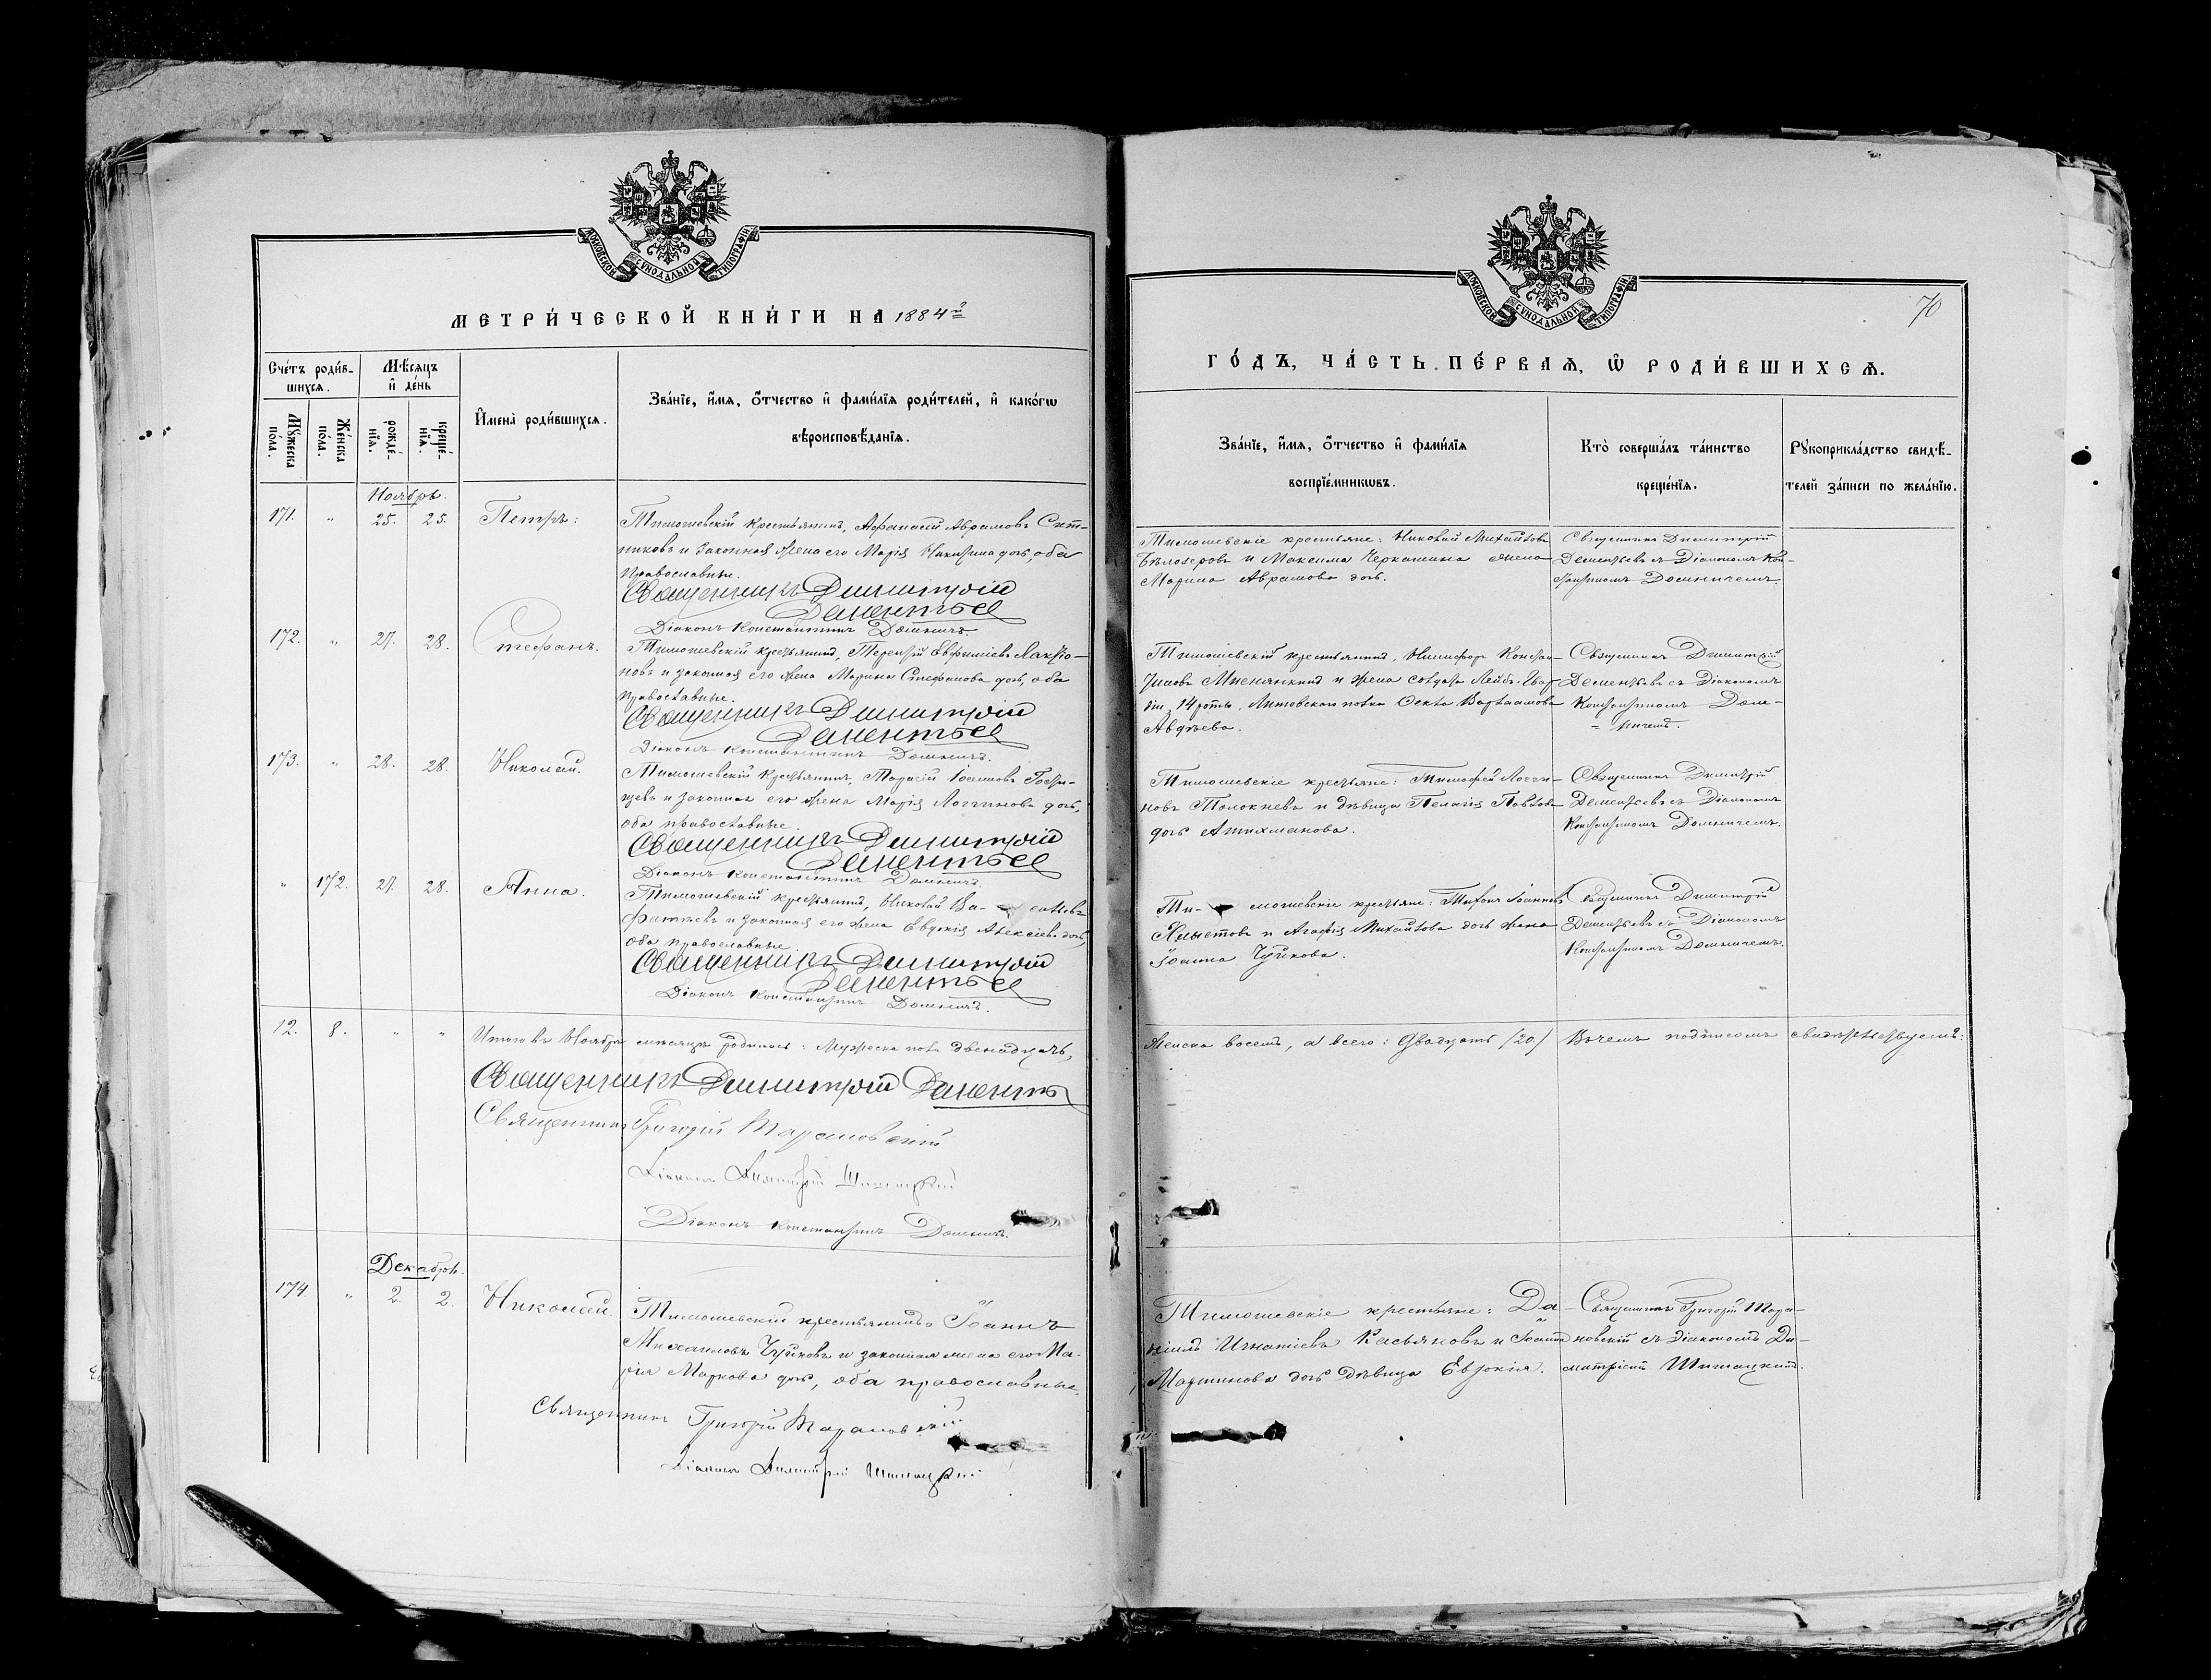 МОСКОВСКОЙ СѴНОДАЛЬНОЙ ТИПОГРАФІИ
МЕТРИ́ЧЕСКОЙ КНИ́ГИ НА 1884й
Сче́тъ роди́в-
шихсѧ.
Мѣ́сяцъ
и҆ де́нь
Мꙋ́жеска
по́ла.
Же́нска
по́ла.
рожде́-
нїѧ.
креще́-
нїѧ.
И҆мена̀ роди́вшихсѧ.
Зва́нїе, и҆́мѧ, ѻ҆́тчество и҆ фами́лїѧ роди́телей, и҆ како́гѡ
вѣроисповѣ́данїѧ.
Ноябрь.
171. " 25. 25. Петръ: Тимошевскій крестьянинъ, Аѳанасій Аврамовъ Сит-
никовъ и законная жена его Марія Никитина дочь, оба
православные.
Священникъ Димитрій
Дементьев
Діаконъ Константинъ Домничъ.
172. " 27. 28. Стефанъ. Тимошевскій крестьянинъ, Терентій Евфиміевъ Лактіо-
новъ и законная его жена Марина Стефанова дочь, оба
православные.
Священникъ Димитрій
Дементьев
Діаконъ Константинъ Домничъ.
173. " 28. 28. Николай. Тимошевскій крестьянинъ, Тарасій
и законная его жена Марія Логгинова дочь,
оба православные.
Священникъ Димитрій
Дементьев
Діаконъ Константинъ Домничъ.
" 172. 27. 28. Анна. Тимошевскій крестьянинъ, Николай
и законная его жена Евдокія Алексіева дочь,
оба православные.
Священникъ Димитрій
Дементьев
Діаконъ Константинъ Домничъ.
12. 8. " " Итого въ Ноябрѣ мѣсяцѣ родилось: Мужеска пола двенадцать,
Священникъ Димитрій Дементьев
Священникъ Григорій Тарановскій
Діаконъ Димитрій Шишацкій
Діаконъ Константинъ Домничъ.
Декабрь.
174. " 2. 2. Николай. Тимошевскій крестьянинъ Іоаннъ
Михаиловъ Чуйковъ и законная жена его Ма-
рія Маркова дочь, оба православные.
Священникъ Григорій Тарановскій
Діаконъ Димитрій Шишацкій
МОСКОВСКОЙ СѴНОДАЛЬНОЙ ТИПОГРАФІИ
70
ГО́ДЪ, ЧА́СТЬ ПЕ́РВАѦ, Ѡ҆ РОДИ́ВШИХСѦ.
Зва́нїе, и҆́мѧ, ѻ҆́тчество и҆ фами́лїѧ
воспрїе́мникѡвъ.
Кто̀ соверша́лъ та́инство
креще́нїѧ.
Рꙋкоприкла́дство свидѣ́-
телей за́писи по жела́нїю.
Тимошевскіе крестьяне: Николай Михайловъ
Бѣлозеровъ и Максима Черкашина жена
Марина Аврамова дочь.
Священникъ Димитрій
Дементьевъ съ Діакономъ Кон-
стантиномъ Домничемъ.
Тимошевскій крестьянинъ, Никифоръ Констан-
тиновъ и жена солдата Лейбъ-Гвар-
діи, 14 роты, Литовскаго полка Ѳекла Варлаамова
Авдѣева.
Священникъ Димитрій
Дементьевъ съ Діакономъ
Константиномъ Дом-
= ничемъ.
Тимошевскіе крестьяне: Тимофей Логги-
новъ Толокневъ и дѣвица Пелагія Павлова
дочь Атахманова.
Священникъ Димитрій
Дементьевъ съ Діакономъ
Константиномъ Домничемъ.
Ти- мошевскіе крестьяне: Тихонъ Іоанновъ
Хлыстовъ и Агафія Михайлова дочь жена
Іоанна Чуйкова.
Священникъ Димитрій
Дементьевъ съ Діакономъ
Константиномъ Домничемъ.
Женска восемь, а всего: двадцать /20/ Въ чемъ подписомъ свидѣтельствуемъ:
Тимошевскіе крестьяне: Да-
ніилъ Игнатіевъ Касьяновъ и Іоанна
Мартинова дочь дѣвица Евдокія.
Священникъ Григорій Тара-
новскій съ діакономъ Ди-
митріемъ Шишацкимъ.